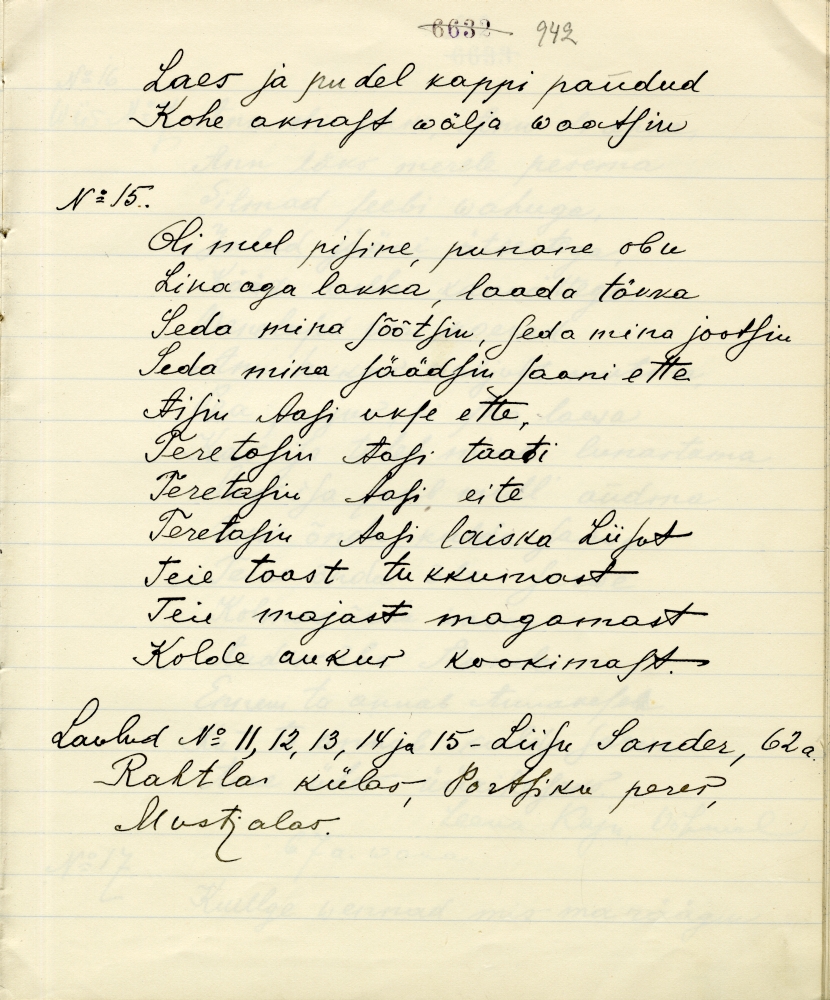 6632 942
Laes ja pudel kappi pandud
Kohe aknast wälja waatsin
№ 15.
Oli mul pisine, punane obu
Linaaga lakka, laada tõkka
Seda mina söötsin, seda mina jootsin
Seda mina säädsin saani ette
Aisin Aasi ukse ette,
Teretasin Aasi taati
Teretasin Aasi eite
Teretasin Aasi laiska Liisut
Teie toast tukkumast
Teie majast magamast
Kolde aukus kookimast.
Laulud № 11, 12, 13, 14 ja 15 - Liisu Sander, 62 a.
Rahtla külas, Portsiku peres,
Mustjalas.